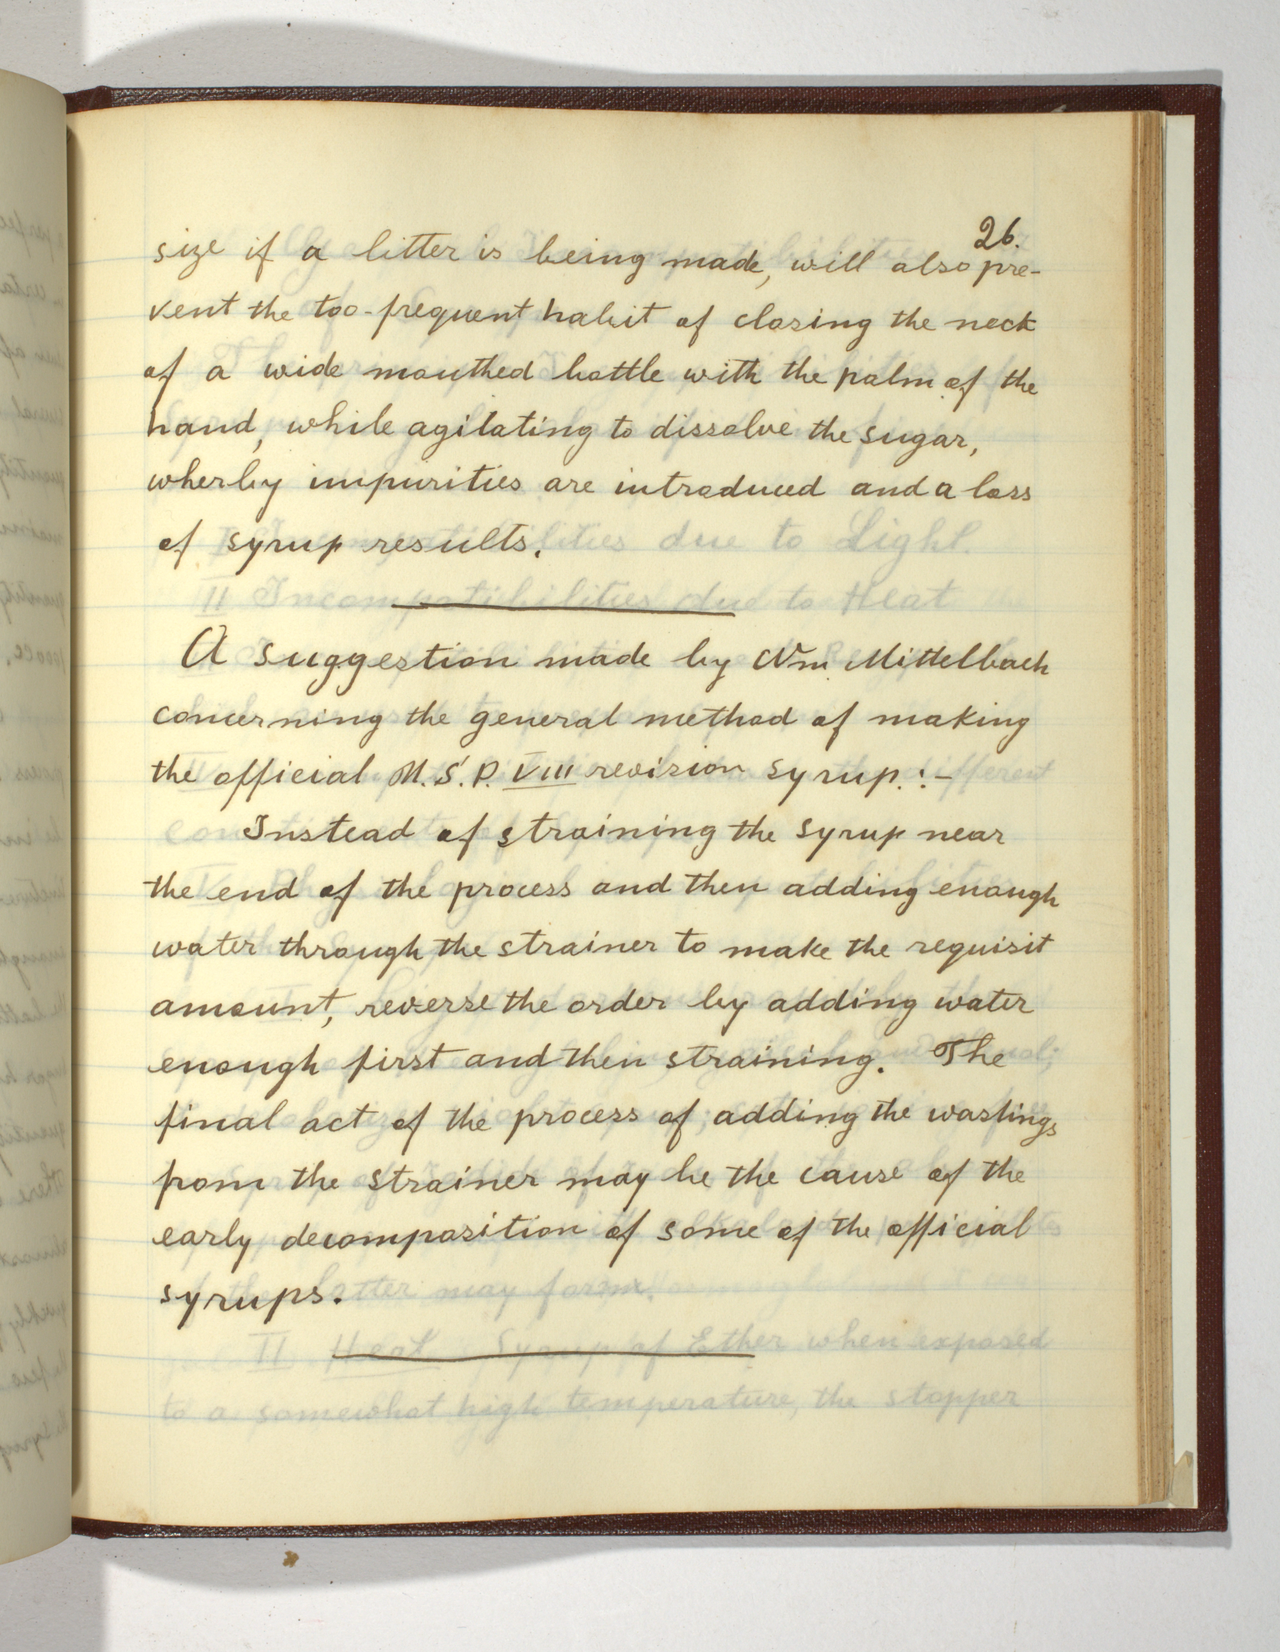 26.
size if a litter is being made, will also pre-
vent the too-frequent habit of closing the neck
of a wide mouthed bottle with the palm of the
hand, while agitating to dissolve the sugar,
wherby impurities are introduced and a loss
of syrup results.
A suggestion made by Wm. Mittelbach
concerning the general method of making
the official U.S.P. VIII revision syrup.:-
Instead of straining the syrup near
the end of the process and then adding enough
water through the strainer to make the requisit
amount, reverse the order by adding water
enough first and then straining. The
final act of the process of adding the washings
from the strainer may be the cause of the
early decomposition of some of the official
syrups.